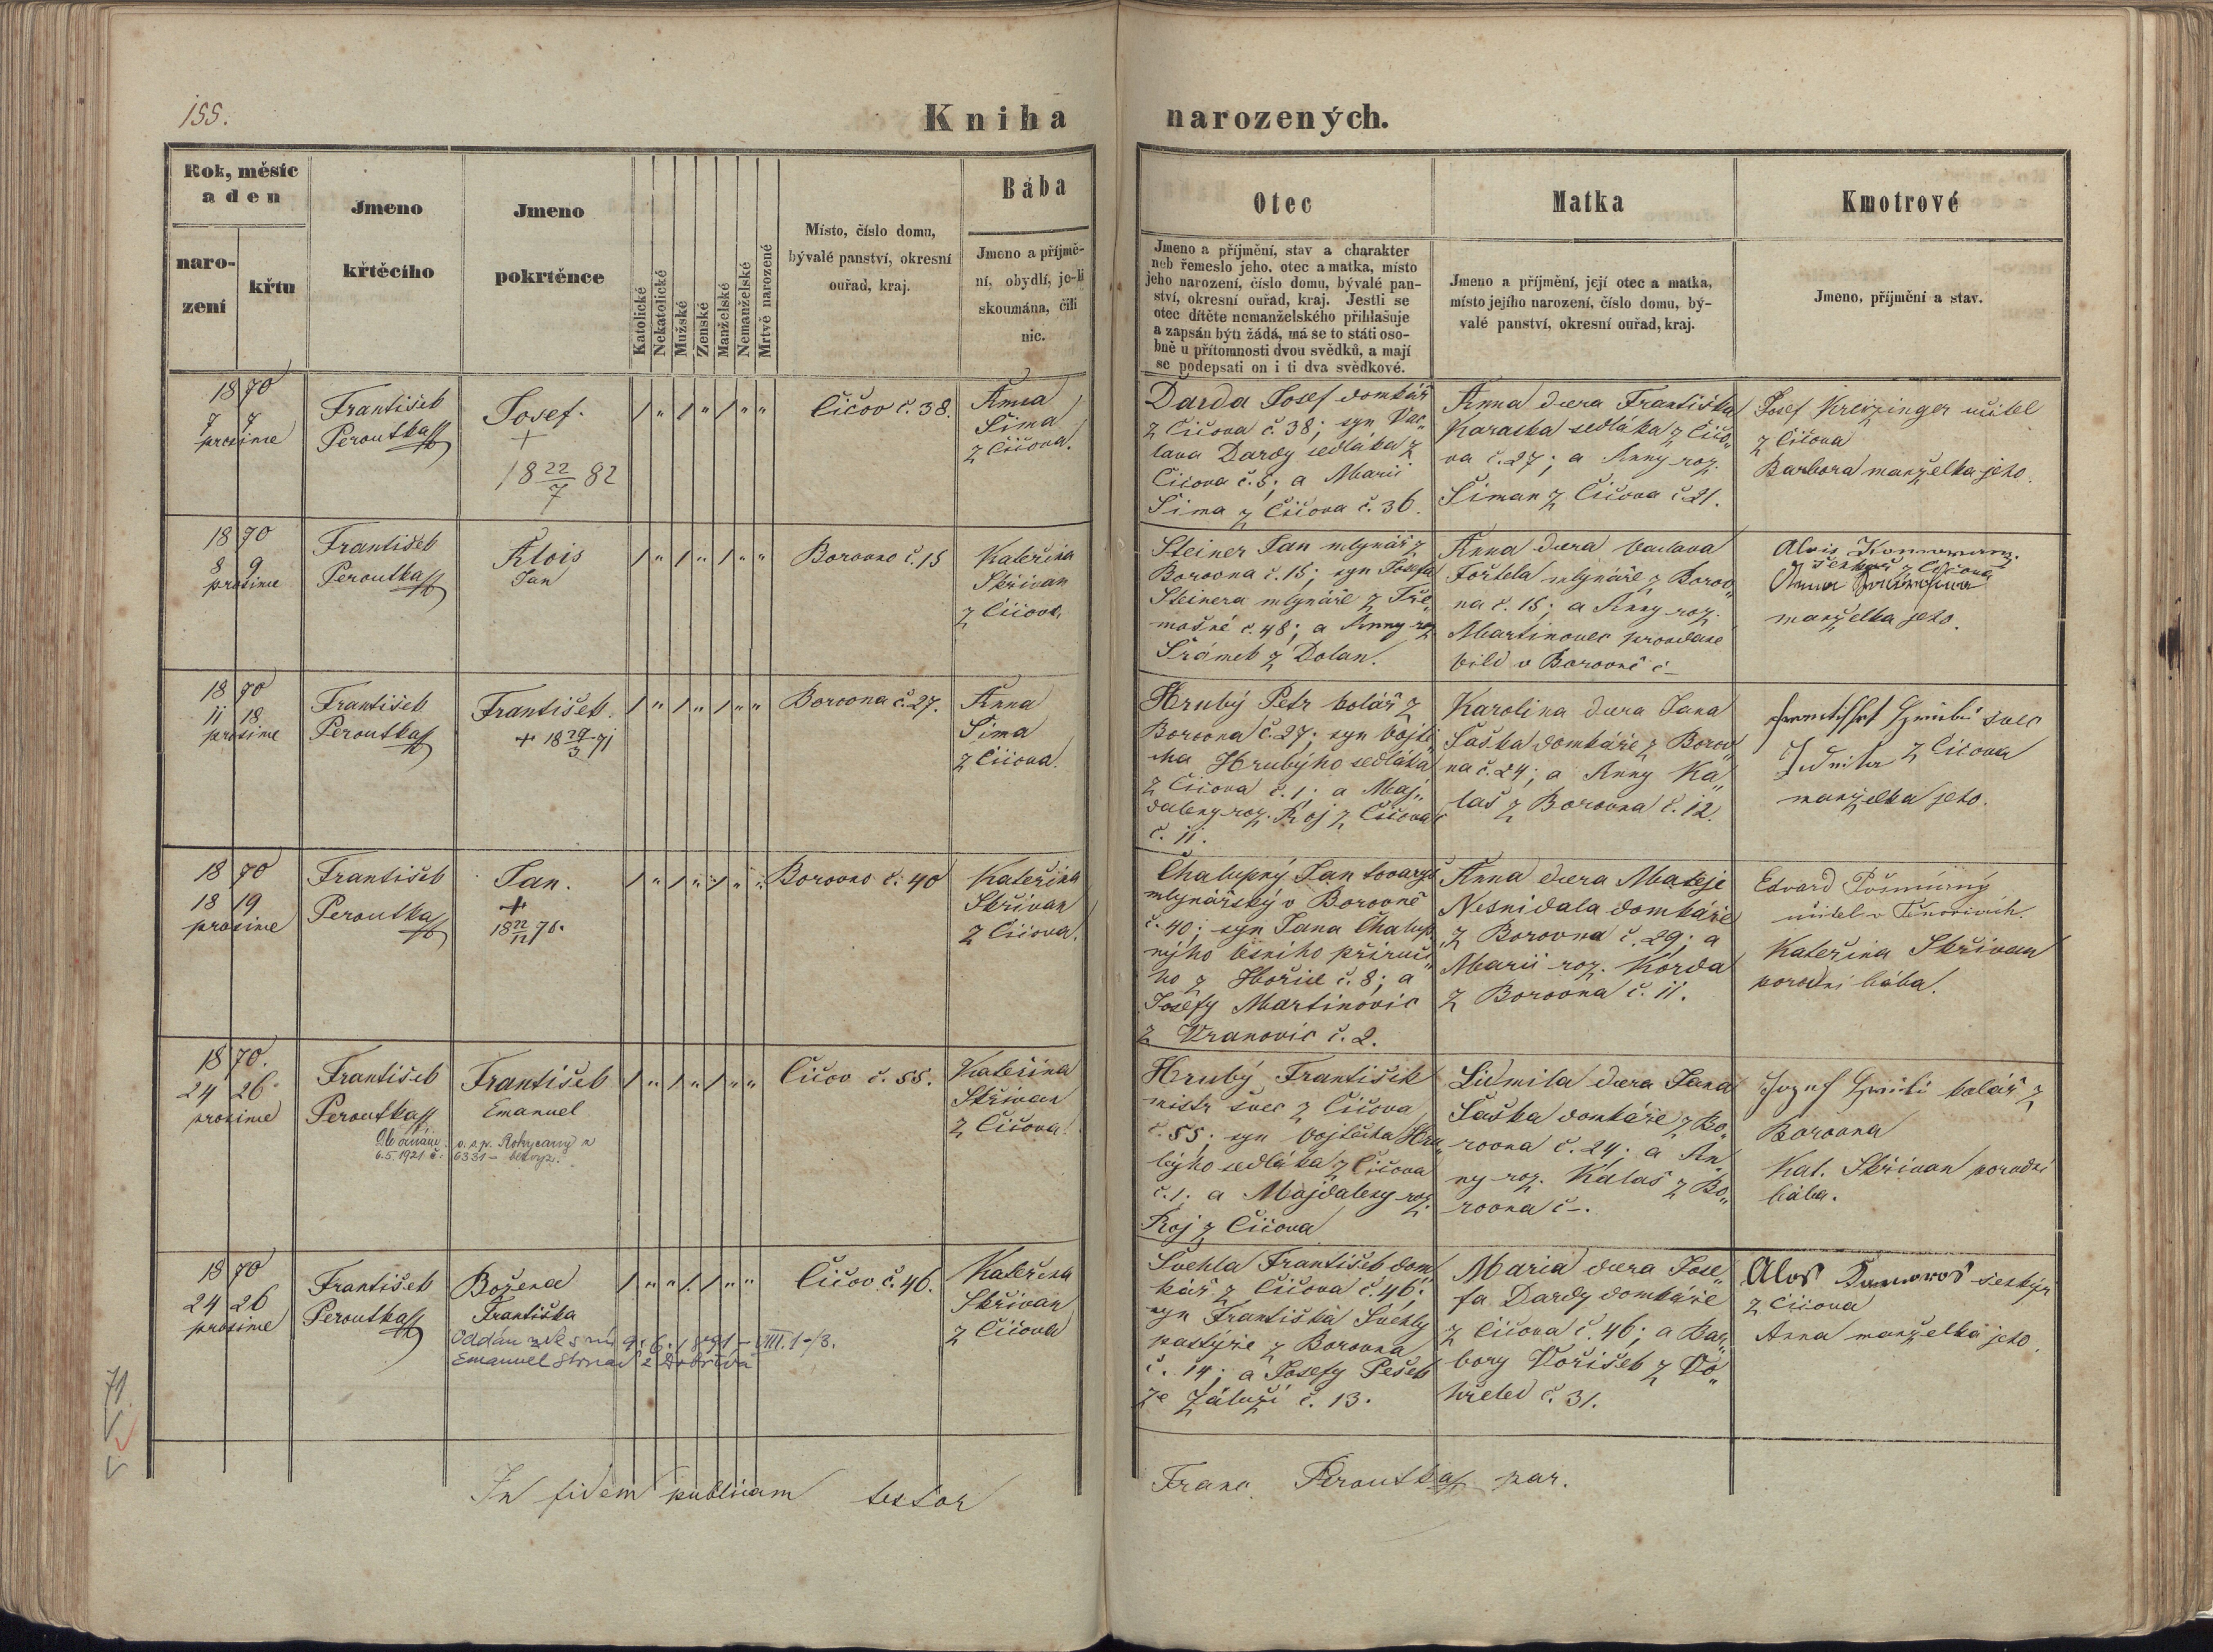 155.
Kniha narozených.
Rok, měsíc
a den
naro-
zení
křtu
Jmeno
křtěcího
Jmeno
pokrtěnce
Katolické
Nekatolické
Mužské
Ženské
Manželské
Nemanželské
Mrtvě narozené
Místo, číslo domu,
bývalé panství, okresní
ouřad, kraj.
Bába
Jmeno a příjmě-
ní, obydlí, je-li
skoumána, čili
nic.
Otec
Jmeno a příjmění, stav a charakter
neb řemeslo jeho, otec a matka, místo
jeho narození, číslo domu, bývalé pan-
ství, okresní ouřad, kraj. Jestli se
otec dítěte nemanželského přihlašuje
a zapsán býti žádá, má se to státi oso-
bně u přítomnosti dvou svědků, a mají
se podepsati on i ti dva svědkové.
Matka
Jmeno a příjmění, její otec a matka,
místo jejího narození, číslo domu, bý-
valé panství, okresní ouřad, kraj.
Kmotrové
Jmeno, příjmění a stav.
1870
7 7
prosince
František
Peroutka
Josef.
+
18 22/7 82
Čičov č. 38.
Anna
Šima
z Čičova.
Darda Josef domkář
z Čičova č. 38; syn Vác„
lava Dardy sedláka z
Čičova č. 5; a Marii
Šima z Čičova č. 36.
Anna dcera Františka
Karaska sedláka z Čičo„
va č. 27; a Anny roz.
Šiman z Čičova č. 21.
Josef Kreizinger učitel
z Čičova
Barbora manželka jeho.
1870
8 9
prosince
František
Peroutka
Alois
Jan
Borovno č. 15
Kateřina
Skřivan
z Čičova
Steiner Jan mlynář z
Borovna č. 15; syn Josefa
Steinera mlynáře z Tře„
mošné č. 48; a Anny roz
Šrámek z Dolan.
Anna dcera Václava
Fořtela mlynáře z Borov„
na č. 15; a Anny roz.
Martinovec provdané
v Borovně č –
Alois
z Čičova
manželka jeho.
1870
11 18
prosince
František
Peroutka
František.
+ 18 29/3 71
Borovna č. 27.
Anna
Šima
z Čičova.
Hrubý Petr kolář z
Borovna č. 27; syn Vojtě„
cha Hrubýho sedláka
z Čičova č. 1; a Maj„
daleny roz. Roj z Čičova
č. 11.
Karolina dcera Jana
Šaška domkáře z Borov„
na č. 24; a Anny Ka„
laš z Borovna č. 12.
švec
z Čičova
manželka jeho.
1870
18 19
prosince
František
Peroutka
Jan.
+
18 22/12 76.
Borovno č. 40
Kateřina
Skřivan
z Čičova.
Chalupný Jan tovaryš
mlynářský v Borovně
č. 40; syn Jana Chalup„
nýho lesního příručí„
ho z Hořic č. 8; a
Josefy Martinovic
z Vranovic č. 2.
Anna dcera Matěje
Nesnídala domkáře
z Borovna č. 29; a
Marii roz. Korda
z Borovna č. 11.
Edvard
učitel v
Kateřina Skřivan
porodní bába.
1870.
24 26
prosince
František
Peroutka
František
Emanuel
o. s. p. Rokycany z
6.5.1921 č. 6331 – bez vyz.
Čičov č. 55.
Kateřina
Skřivan
z Čičova.
Hrubý František
mistr švec z Čičova
č. 55; syn Vojtěcha Hru„
býho sedláka z Čičova
č. 1. a Majdaleny roz.
Roj z Čičova
Lidmila dcera Jana
Šaška domkáře z Bo„
rovna č. 24; a An„
ny roz. Kalaš z Bo„
rovna č –.
Josef Hrubi kolář z
Borovna
Kat. Skřivan porodní
bába.
1870
24 26
prosince
František
Peroutka
Božena
Františka
Oddán zde s ní 9. 6. 1891 – VIII. 1-/3.
Emanuel Strnad z Dobříva
Čičov č. 46.
Kateřina
Skřivan
z Čičova
Švehla František dom„
kář z Čičova č. 46;
syn Františka Švehly
pastýře z Borovna
č. 14; a Josefy Pešek
ze Záluží č. 13.
Maria dcera Jose„
fa Dardy domkáře
z Čičova č. 46; a Bar„
bory Voříšek z Vo„
křeled č. 31.
z Čičova
Anna manželka jeho.
71.
In fidem publicam testor
Franc. Peroutka far.